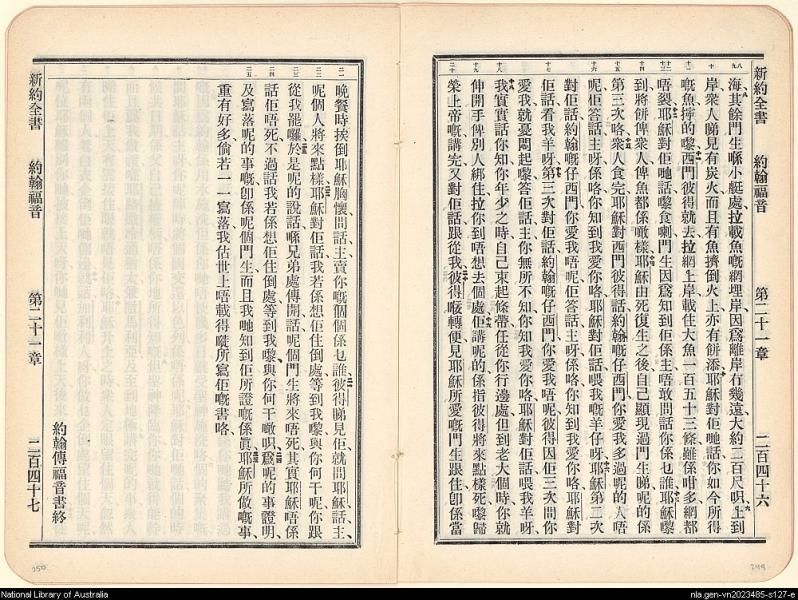 新約全書 約翰福音 第二十一章 二百四十六
海其餘門生喺小艇處拉載魚嘅網埋岸因爲離岸冇幾遠大約二百尺呮上到
岸衆人睇見有炭火而且有魚擠倒火上亦有餅添耶穌對佢哋話你如今所得
嘅魚擰的嚟西門彼得就去拉網上岸載住大魚一百五十三條雖係咁多網都
唔裂耶穌對佢哋話嚟食喇門生因爲知到佢係主唔敢問話你係乜誰耶穌嚟
到將餅俾衆人俾魚都係噉樣耶穌由死復生之後自己顯現過門生睇呢的係
第三次咯衆人食完耶穌對西門彼得話約翰嘅仔西門你愛我多過呢的人唔
呢佢答話主呀係咯你知到我愛你咯耶穌對佢話喂我嘅羊仔呀耶穌第二次
對佢話約翰嘅仔西門你愛我唔呢佢答話主呀係咯你知到我愛你咯耶穌對
佢話看我羊呀第三次對佢話約翰嘅仔西門你愛我唔呢彼得因佢三次問你
愛我就憂悶起嚟答佢話主你無所不知你知我愛你咯耶穌對佢話喂我羊呀
我實實話你知你年少之時自己束起條帶任從你行邊處但到老大個時你就
伸開手俾別人綁住拉你到唔想去個處佢講呢的係指彼得將來點樣死嚟歸
榮上帝嘅講完又對佢話跟從我彼得嚈轉便見耶穌所愛嘅門生跟住卽係當
晚餐時挨倒耶穌胸懷問話主賣你嘅個個係乜誰彼得睇見佢就問耶穌話主
呢個人將來點樣耶穌對佢話我若係想佢住倒處等到我嚟與你何干呢你跟
從我罷囉於是呢的說話喺兄弟處傳開話呢個門生將來唔死其實耶穌唔係
話佢唔死不過話我若係想佢住倒處等到我嚟與你何干噉呮爲呢的事證明
及寫落呢的事嘅卽係呢個門生而且我哋知到佢所證嘅係眞耶穌所做嘅事
重有好多倘若一一寫落我估世上唔載得嗮所寫佢嘅書咯
約翰傳福音書終
新約全書 約翰福音 第二十一章 二百四十七
250
249
National Library of Australia
nla.gen-vn2023485-s127-e